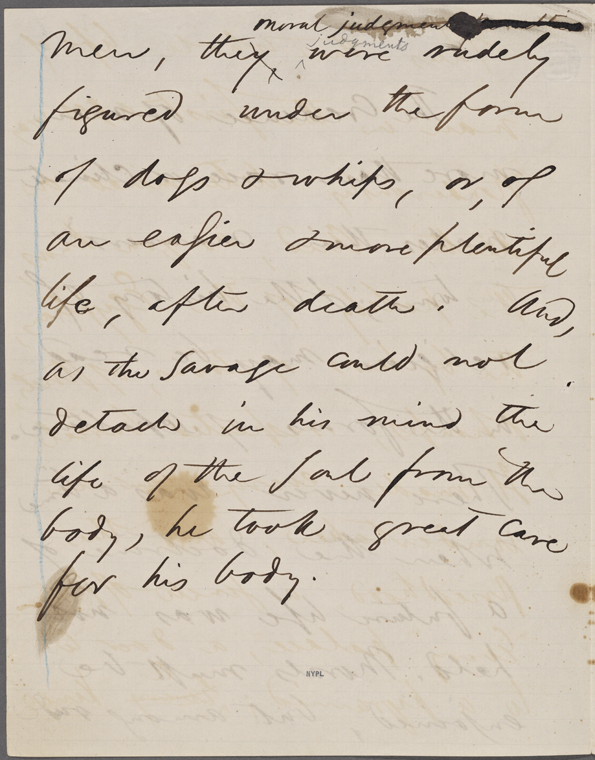 moral judgments
judgments
men, they were rudely
figured under the form
of dogs & whips, or, of
an easier & more plentiful
life, after death. And,
as the Savage could not
detach in his mind the
life of the Soul from the
body, he took great care
for his body.
NYPL